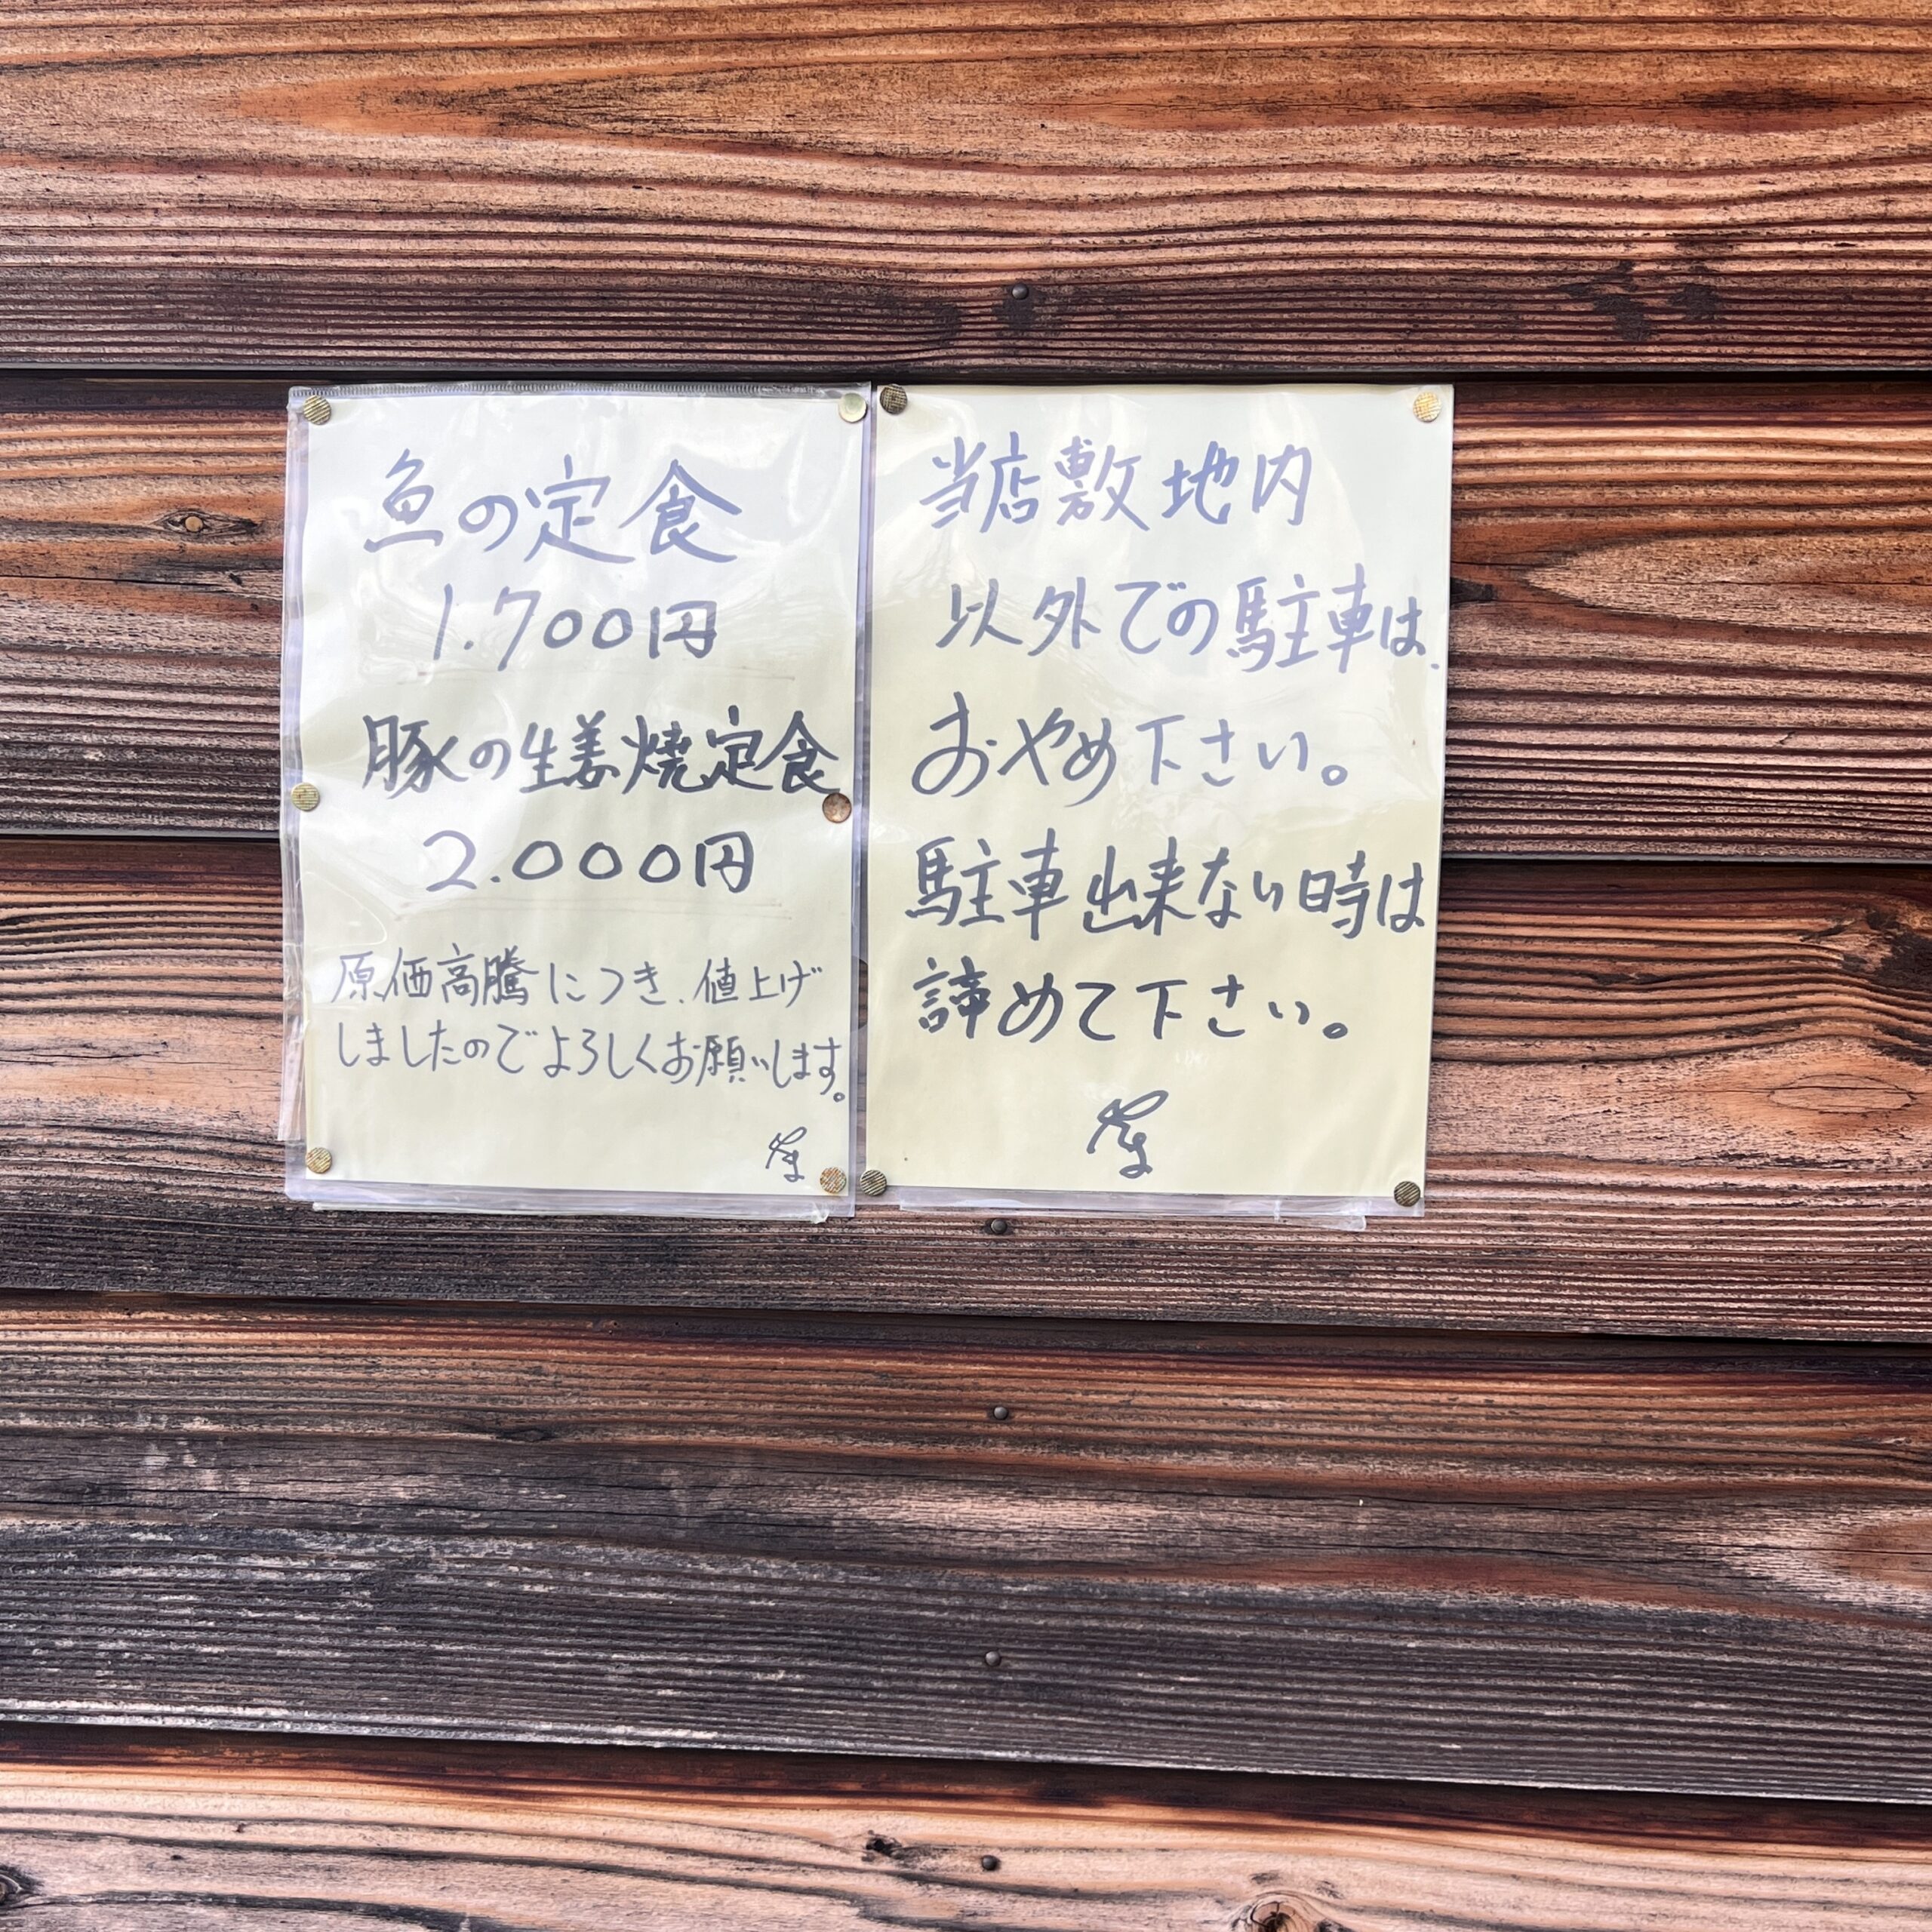 魚の定食
1.700円
豚の生姜焼定食
2.000円
原価高騰につき、値上げ
しましたのでよろしくお願いします。
当店敷地内
以外での駐車は、
おやめ下さい。
駐車出来ない時は
諦めて下さい。